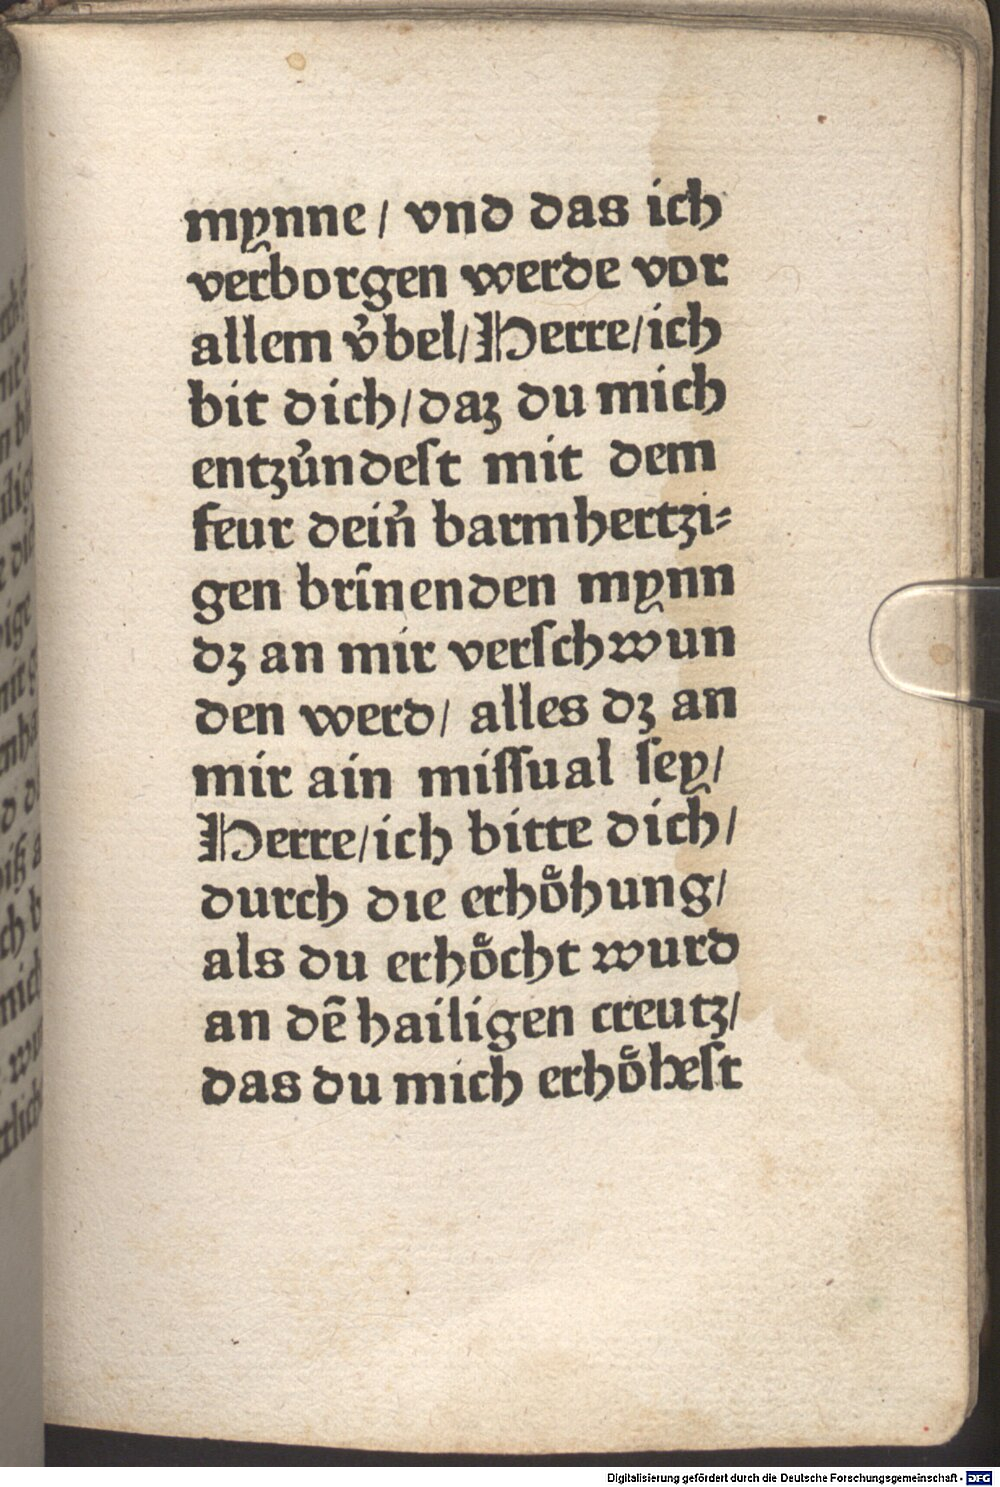 mynne / vnd das ich
verborgen werde vor
allem v̉bel/ Herre/ich
bit dich/daꝫ du mich
entzu̓ndeſt mit dem
feur dein̉ barmhertzi⸗
gen brīnenden mynn
dꝫ an mir verſchwun
den werd/ alles dꝫ an
mir ain miſſual ſey/
Herre/ich bitte dich/
durch die erhoͤhung/
als du erhoͤcht wurd
an dē hailigen creutz/
das du mich erhoͤheſt
Digitalisierung gefördert durch die Deutsche Forschungsgemeinschaft - DFG